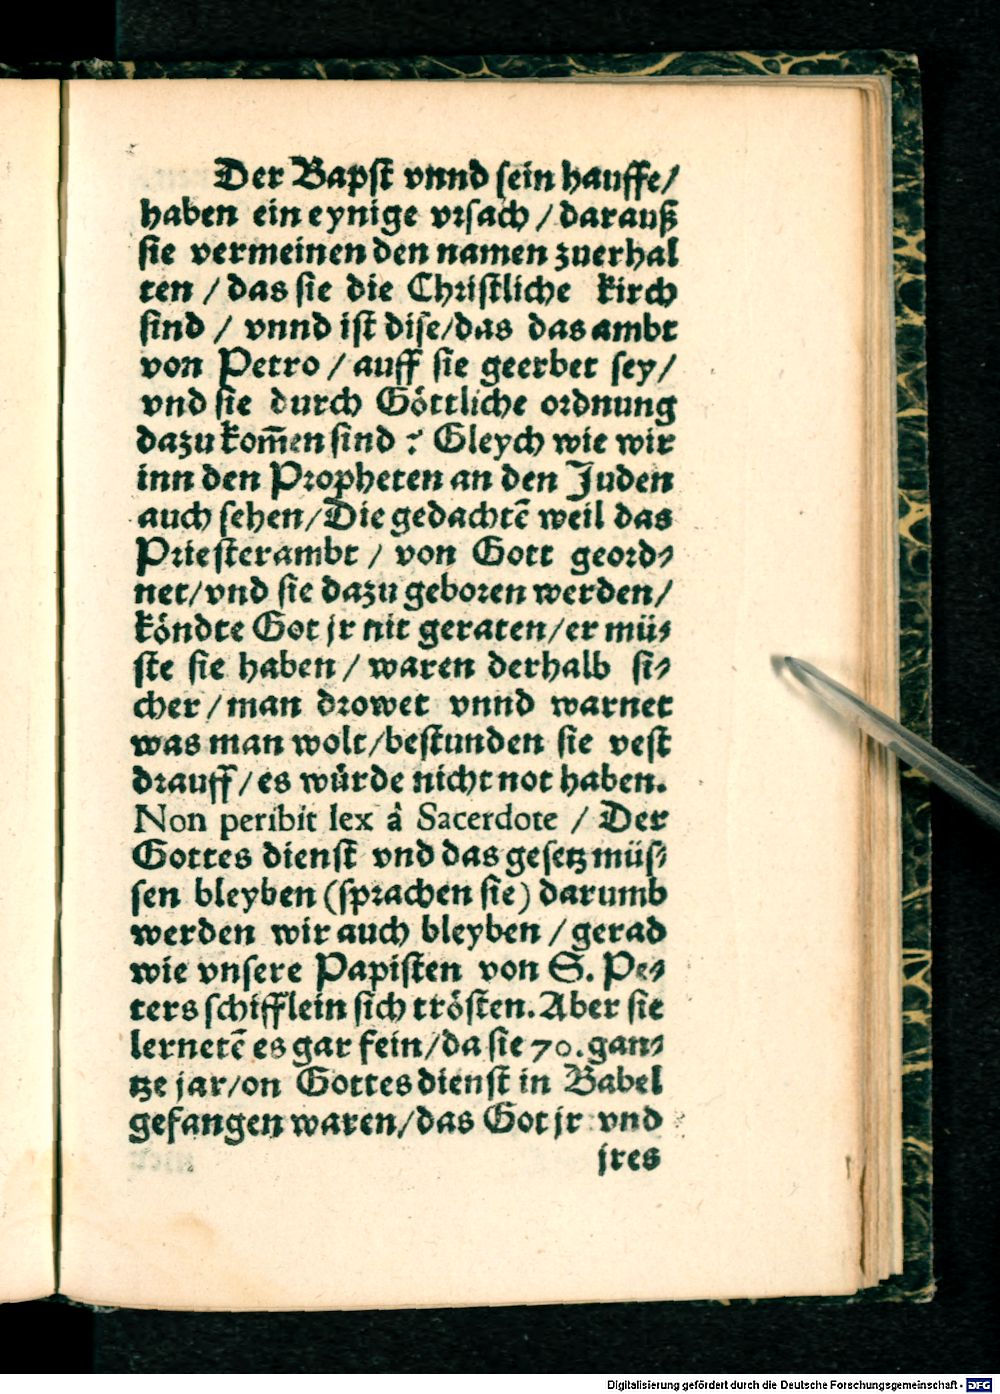 Der Bapst vnnd sein hauffe/
haben ein eynige vrsach / darauß
sie vermeinen den namen zuerhal
ten / das sie die Christliche kirch
sind / vnnd ist dise/das das ambt
von Petro / auff sie geerbet sey/
vnd sie durch Göttliche ordnung
dazu kom̄en sind ? Gleych wie wir
inn den Propheten an den Juden
auch sehen/Die gedachtē weil das
Priesterambt / von Gott geord⸗
net/vnd sie dazu geboren werden/
köndte Got jr nit geraten/er müs⸗
ste sie haben / waren derhalb si⸗
cher/man drowet vnnd warnet
was man wolt/bestunden sie vest
drauff/es würde nicht not haben.
Non peribit lex â Sacerdote / Der
Gottes dienst vnd das gesetz müs⸗
sen bleyben (sprachen sie) darumb
werden wir auch bleyben / gerad
wie vnsere Papisten von S. Pe⸗
ters schifflein sich trösten. Aber sie
lernetē es gar fein/da sie 70. gan⸗
tze jar/on Gottesdienst in Babel
gefangen waren/das Got jr vnd
jres
Digitalisierung gefördert durch die Deutsche Forschungsgemeinschaft - DFG